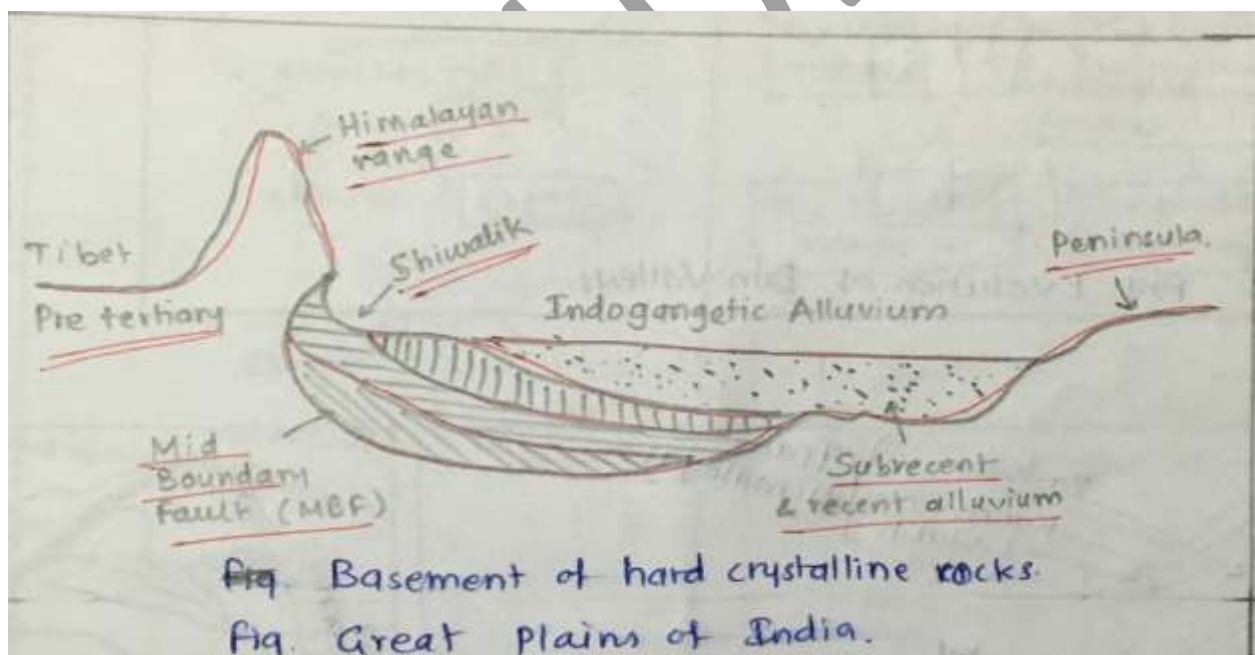 Himalayan
range
Tibet
Pre tertiary
Shiwalik
Indogangetic Alluvium
Peninsula.
Mid
Boundary
Fault (MBF)
Subrecent
& recent alluvium
Basement of hard crystalline rocks.
fig. Great Plains of India.